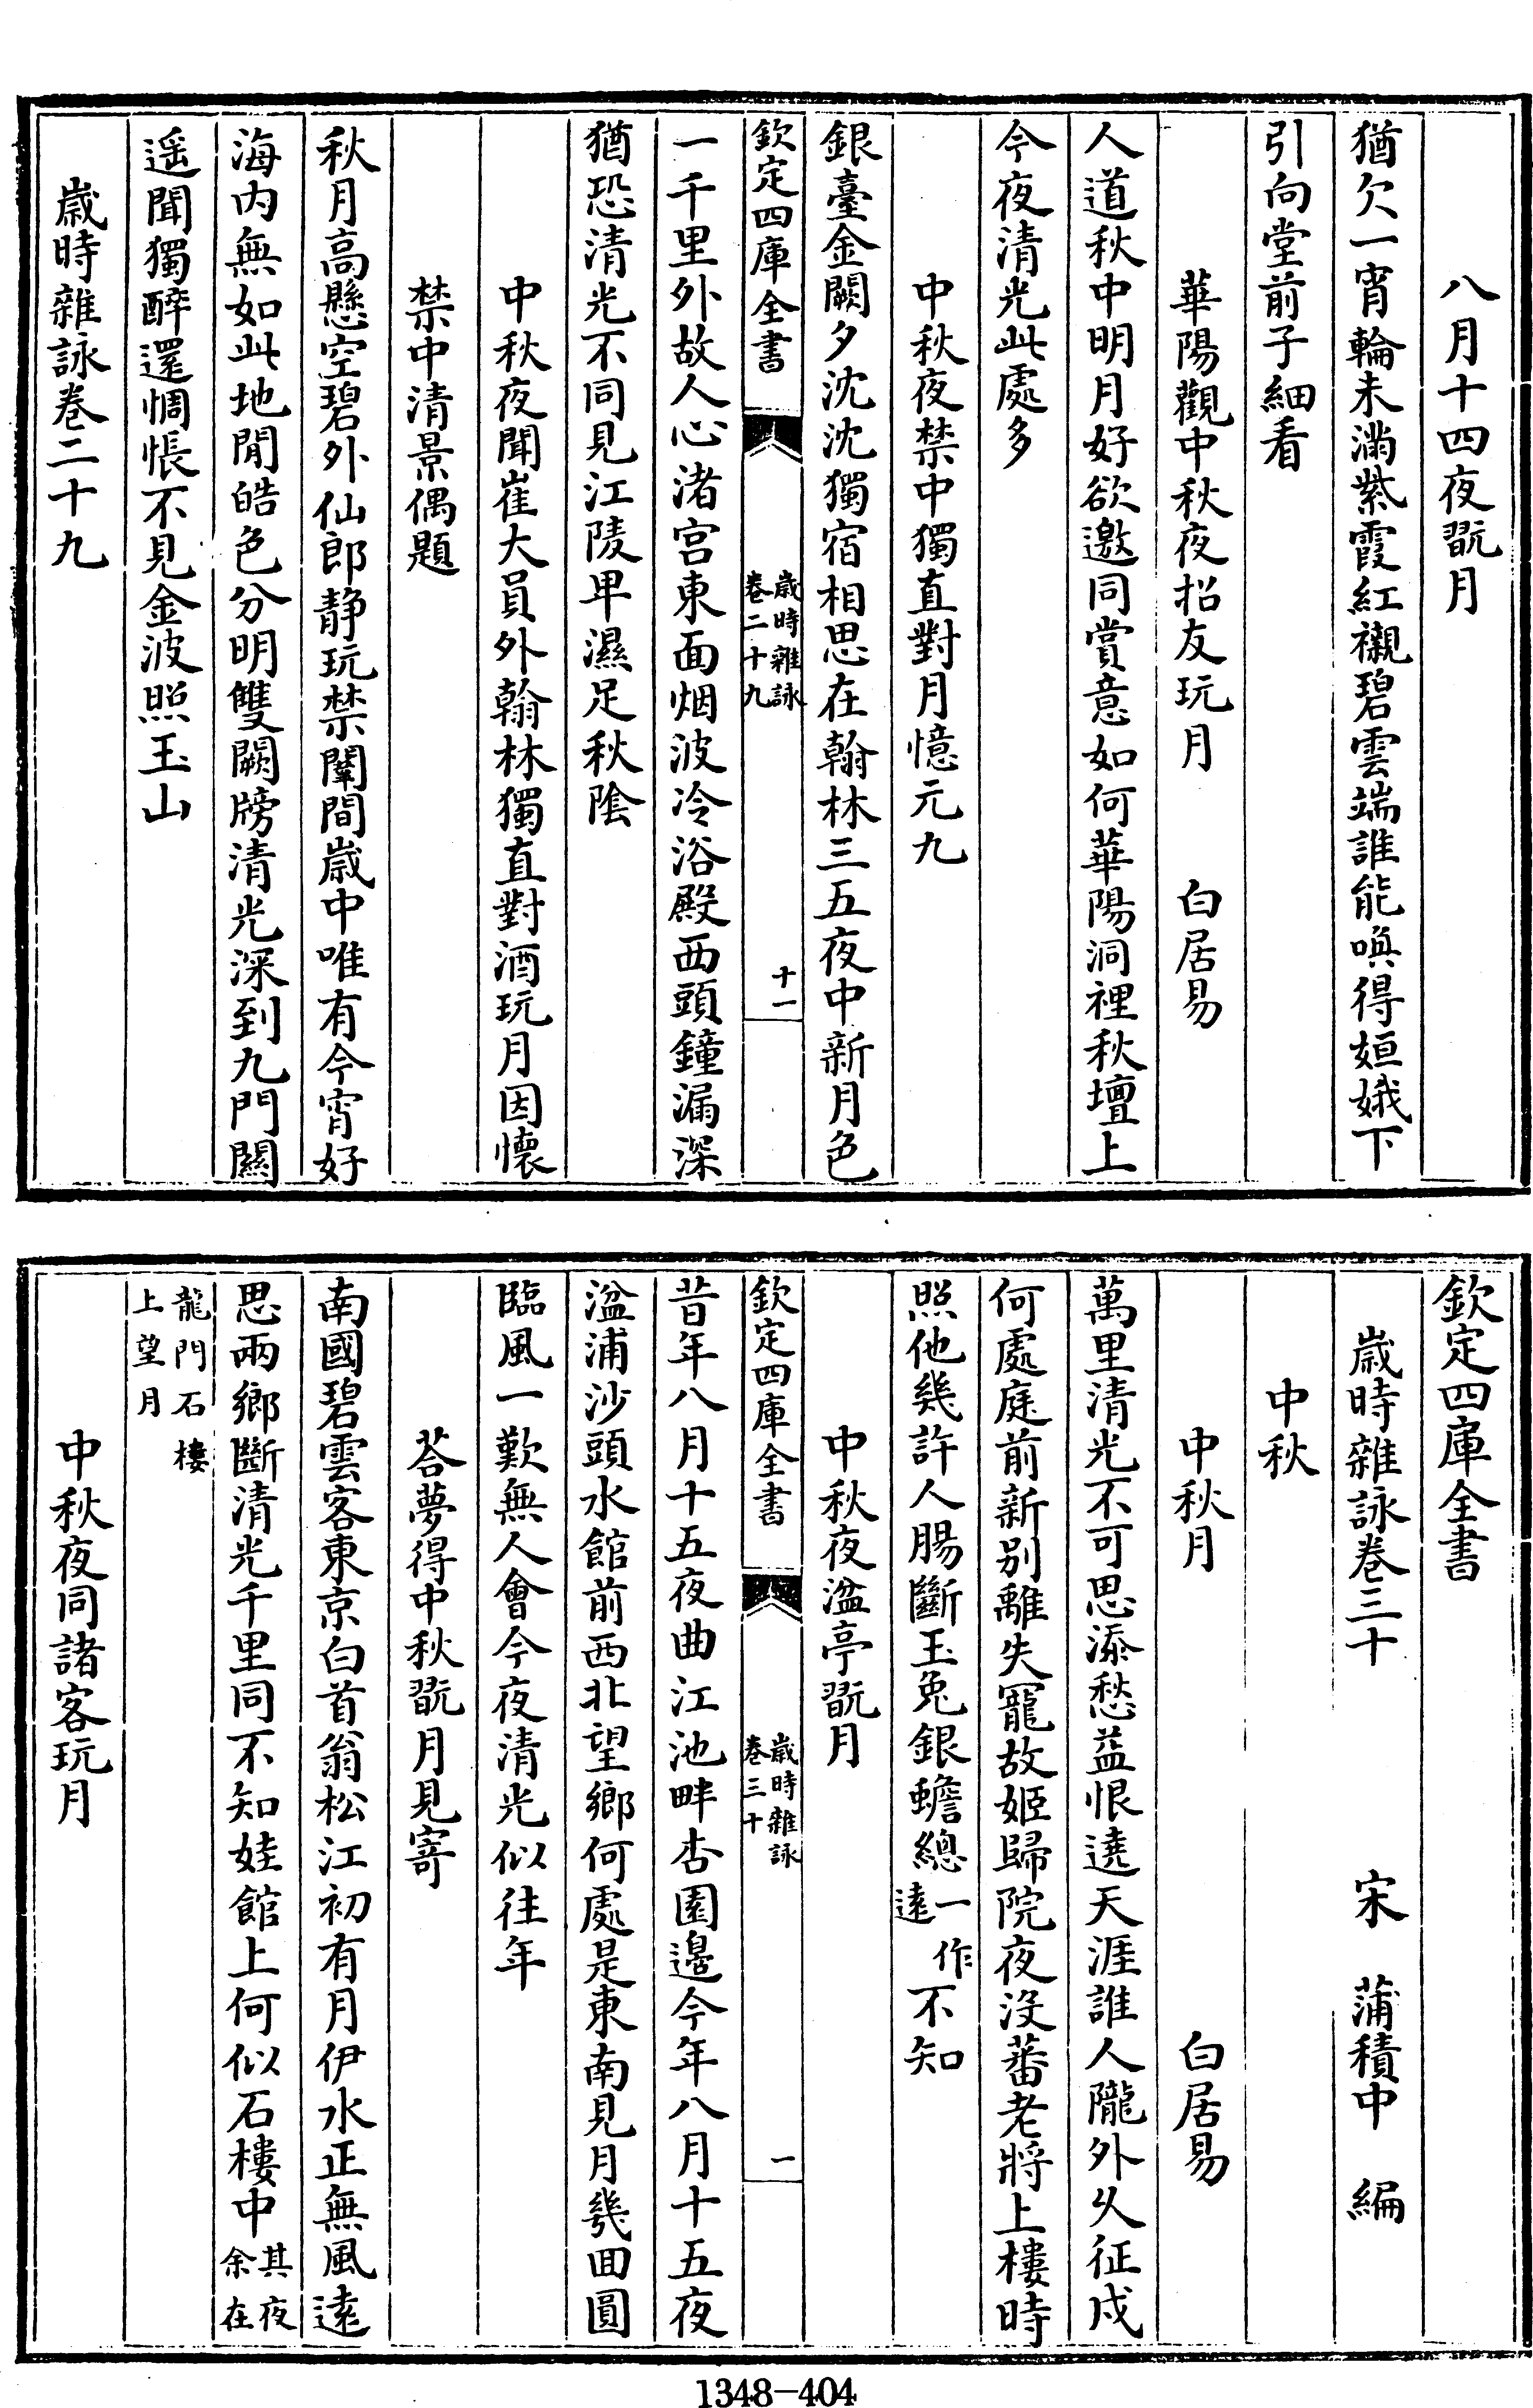 八月十四夜翫月
猶欠一宵輪未滿紫霞紅襯碧雲端誰能喚得姮娥下
引向堂前子細看
華陽觀中秋夜招友玩月 白居易
人道秋中明月好欲邀同賞意如何華陽洞裡秋壇上
今夜清光此處多
中秋夜禁中獨直對月憶元九
銀臺金闕夕沈沈獨宿相思在翰林三五夜中新月色
欽定四庫全書 歲時雜詠卷二十九 十一
一千里外故人心渚宮東面烟波冷浴殿西頭鐘漏深
猶恐清光不同見江陵卑濕足秋陰
中秋夜聞崔大員外翰林獨直對酒玩月因懷
禁中清景偶題
秋月高懸空碧外仙郎静玩禁闈間歲中唯有今宵好
海内無如此地閒皓色分明雙闕牓清光深到九門關
遥聞獨醉還惆悵不見金波照玉山
歲時雜詠卷二十九
欽定四庫全書
歲時雜詠卷三十 宋 蒲積中 編
中秋
中秋月 白居易
萬里清光不可思添愁益恨遶天涯誰人隴外久征戍
何處庭前新别離失寵故姬歸院夜没蕃老將上樓時
照他幾許人腸斷玉兔銀蟾總一作遠不知
中秋夜湓亭翫月
欽定四庫全書 歲時雜詠卷三十 一
昔年八月十五夜曲江池畔杏園邉今年八月十五夜
湓浦沙頭水館前西北望鄉何處是東南見月幾囬圓
臨風一歎無人會今夜清光似往年
荅夢得中秋翫月見寄
南國碧雲客東京白首翁松江初有月伊水正無風遠
思兩鄉斷清光千里同不知娃館上何似石樓中其夜余在
龍門石樓上望月
中秋夜同諸客玩月
1348-404